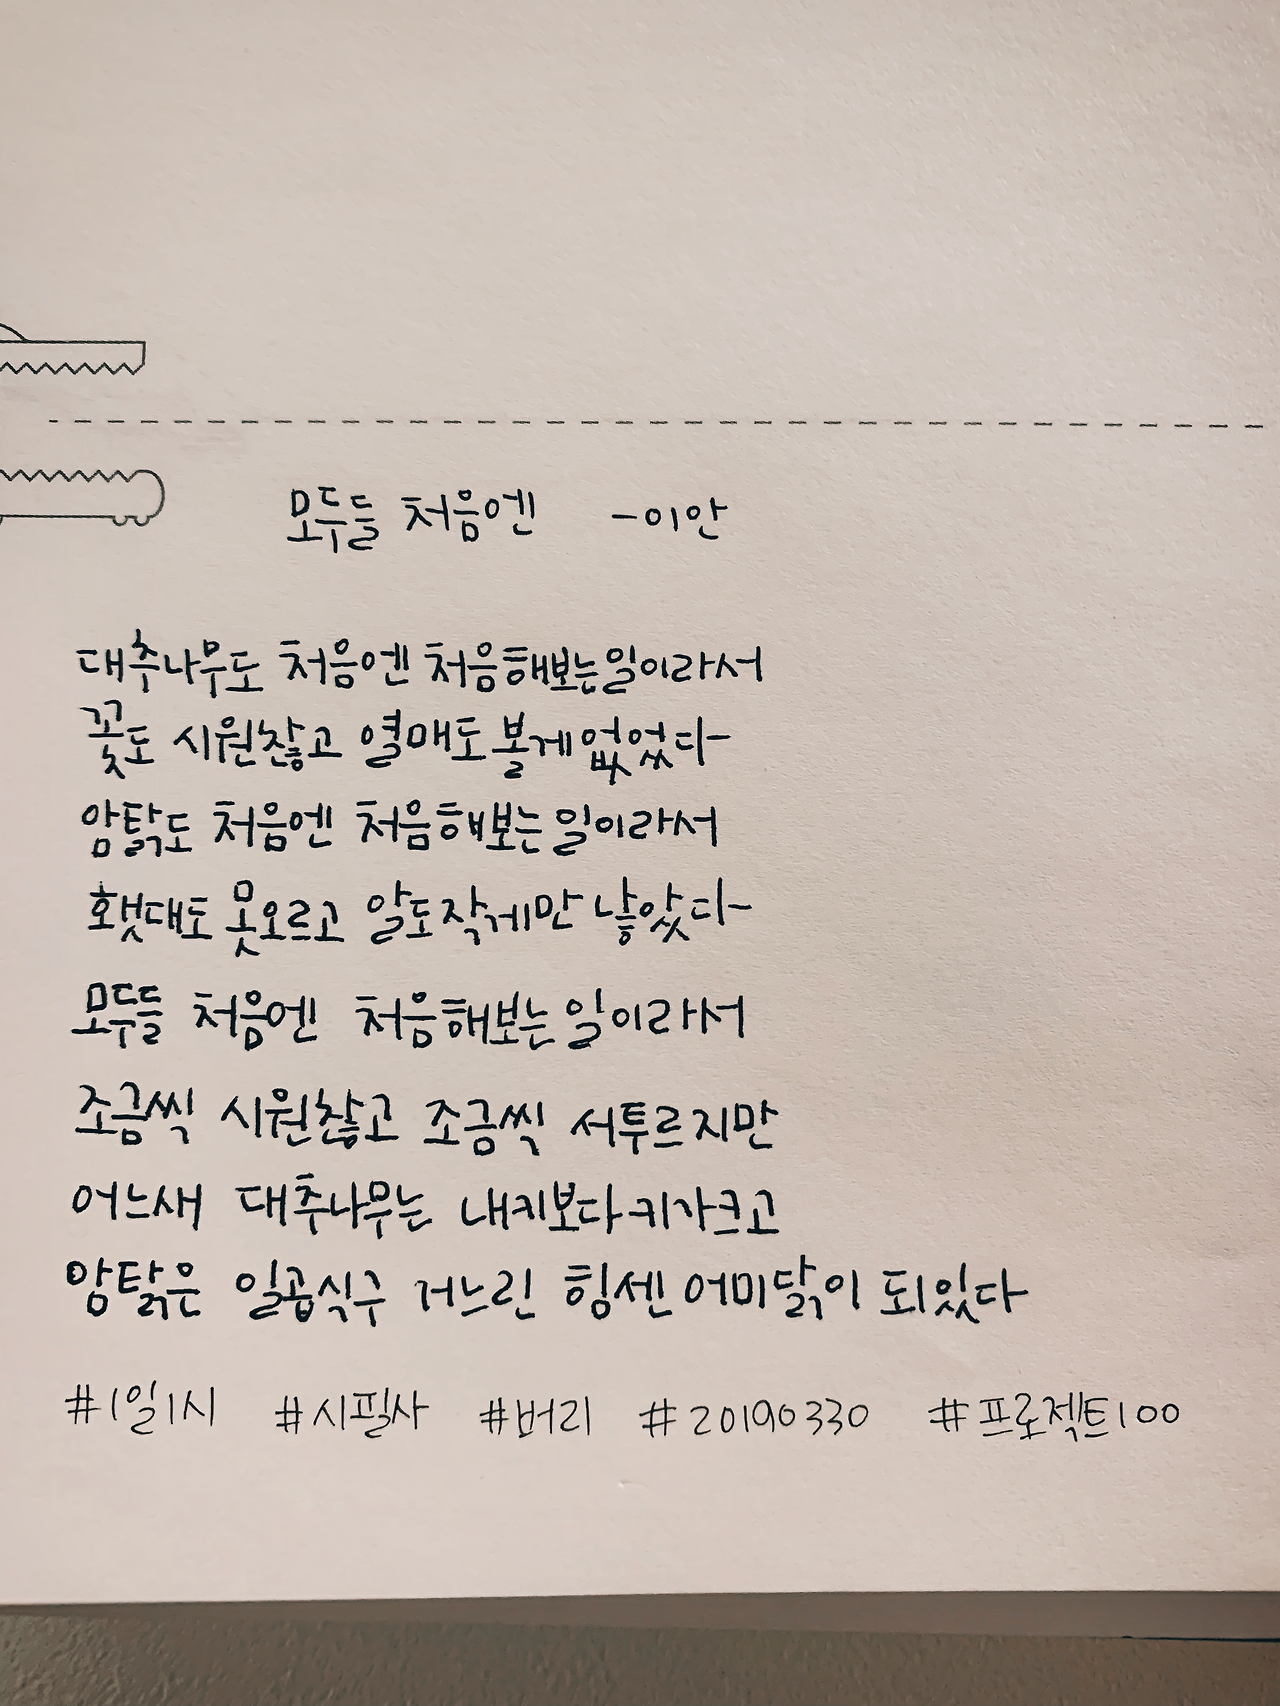 모두들 처음엔 -이안
대추나무도 처음엔 처음해보는일이라서
꽃도 시원찮고 열매도 볼게없었다-
암탉도 처음엔 처음해보는일이라서
횃대도 못오르고 알도작게만 낳았다-
모두들 처음엔 처음해보는일이라서
조금씩 시원찮고 조금씩 서투르지만
어느새 대추나무는 내키보다키가크고
암탉은 일곱식구 거느린 힘센어미닭이 되있다
#1일1시 #시필사 #버리 #20190330 #프로젝트100